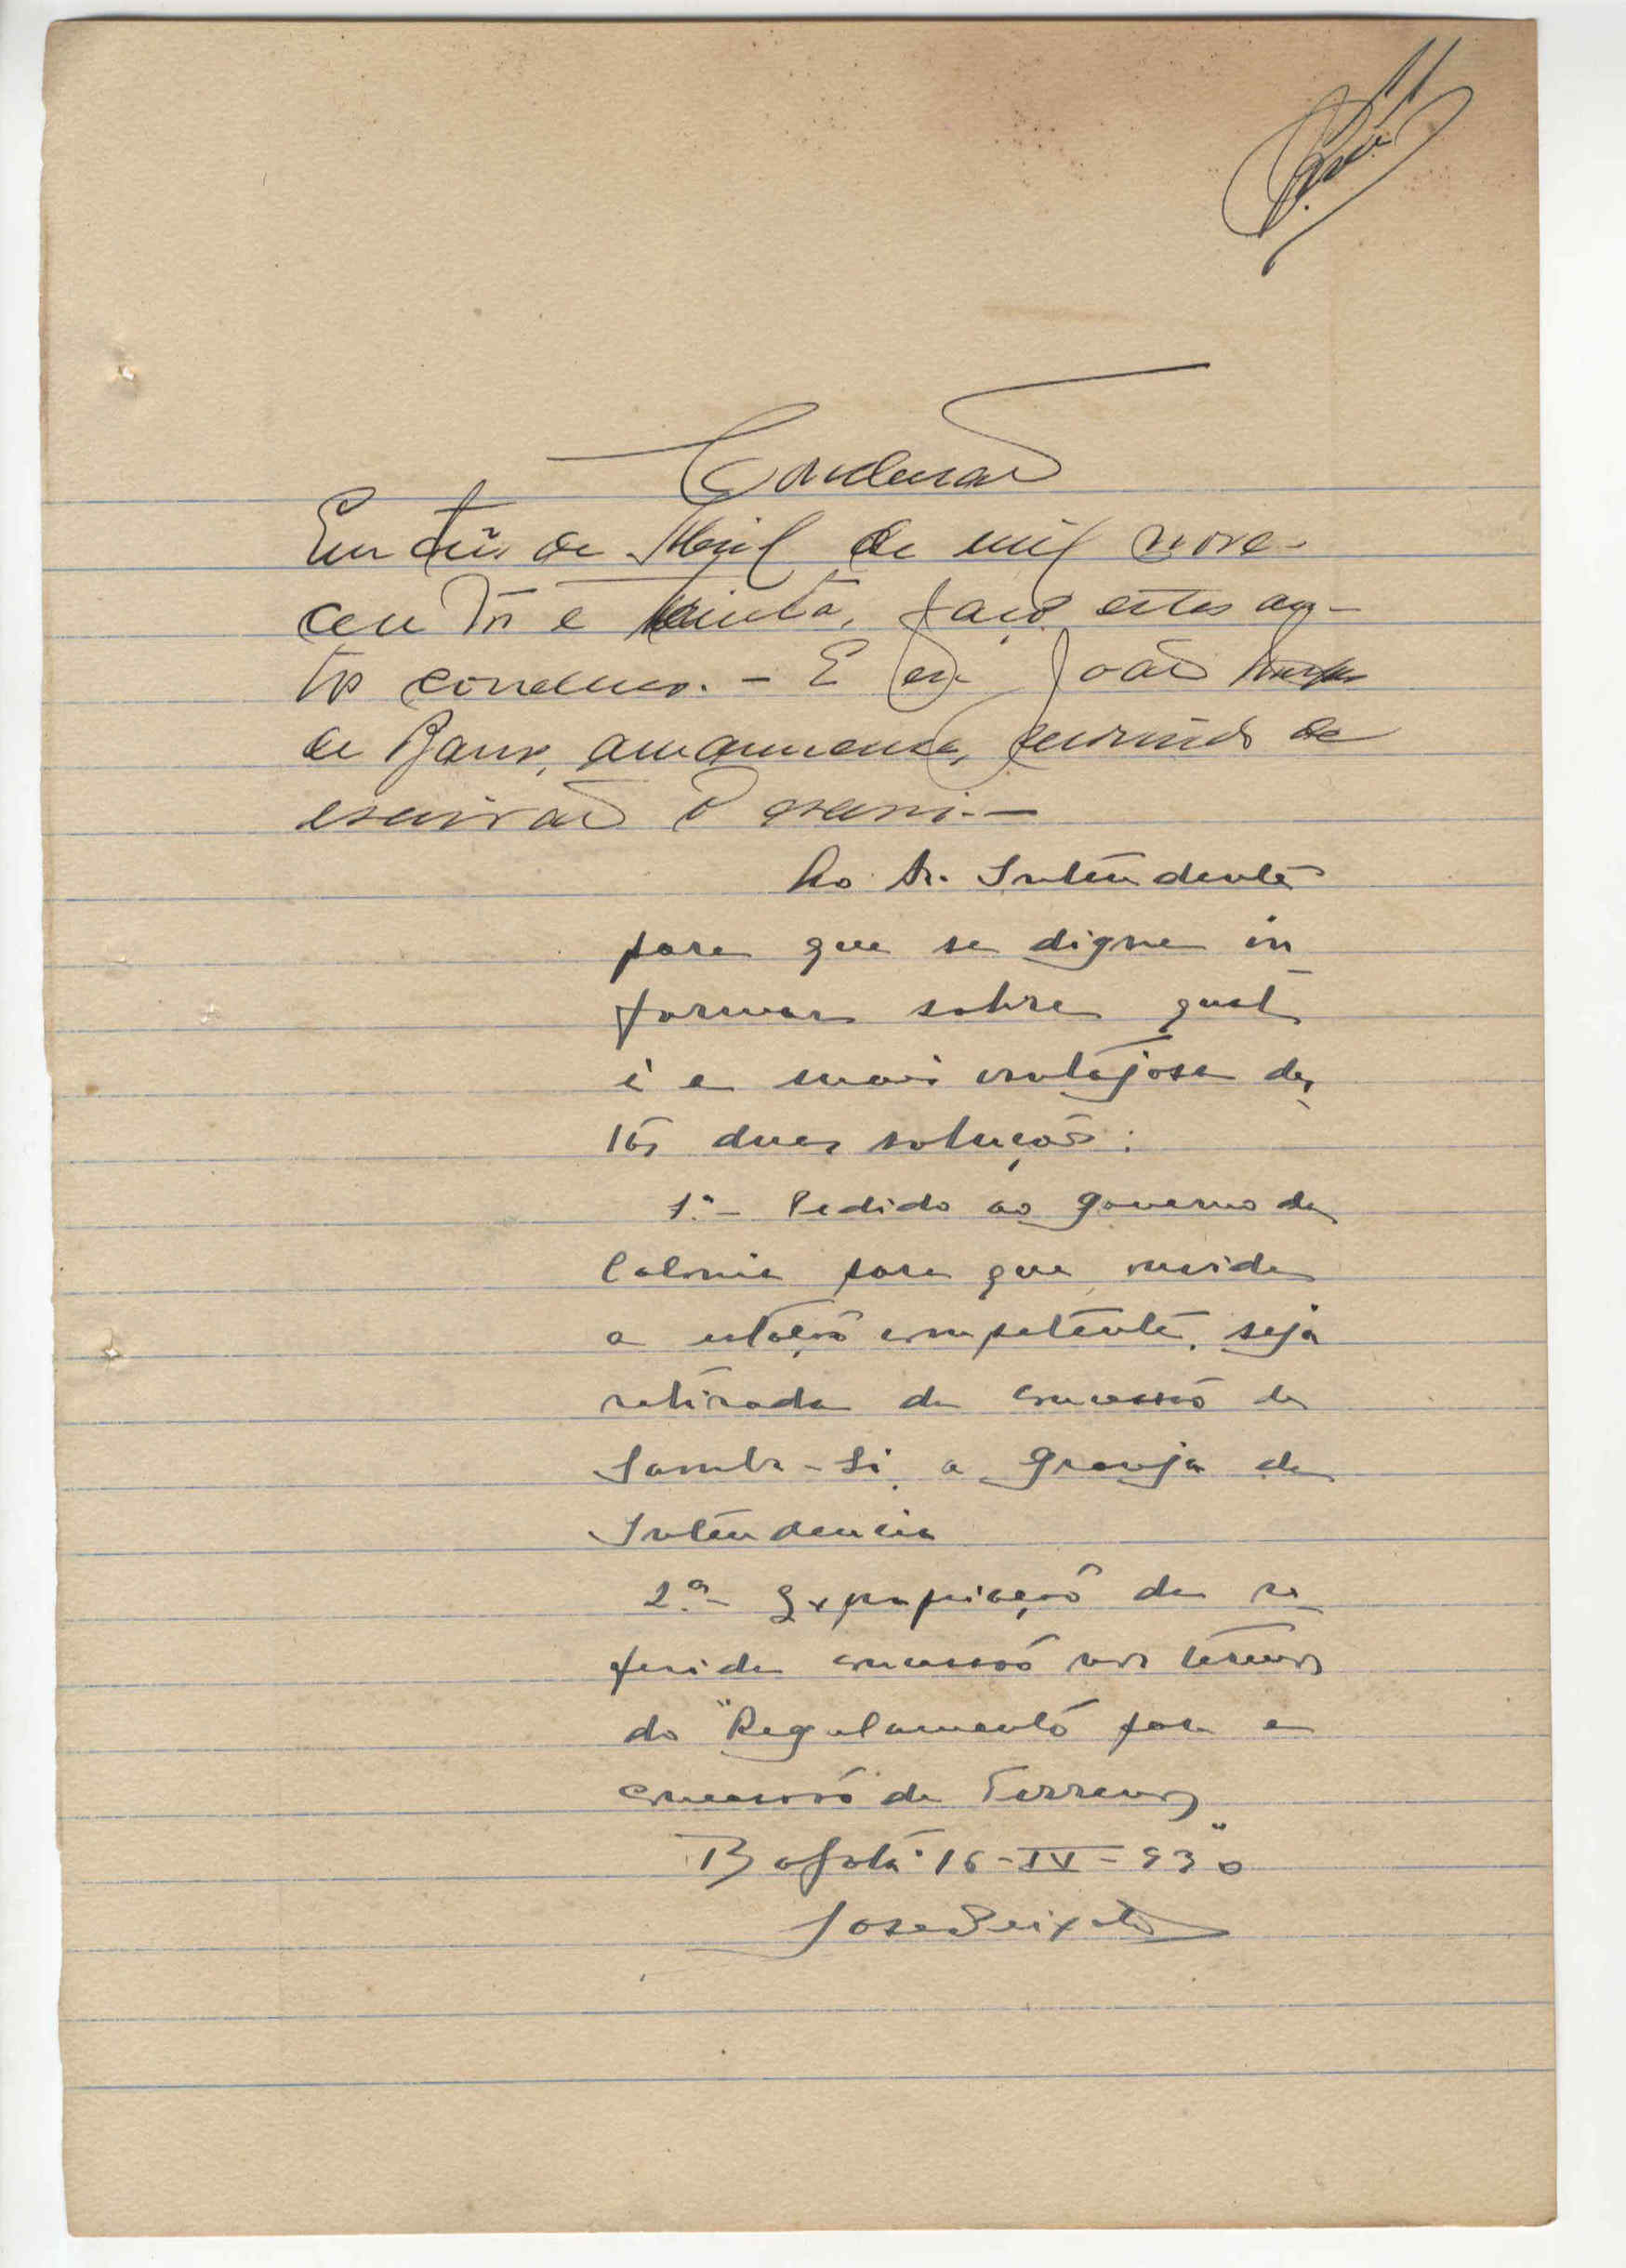 Conclusão
Em de Abril de mil nove-
centos e trinta, faço estes au-
tos conclusos. - E eu João
de Barros, amanuense, servindo de
escrivão o escrevi. -
Ao Sr. Intendente
para que se digne in
formar sobre qual
é a mais vantajosa des
tas duas soluções:
1.ª - Pedido ao governo da
Colonia para que ouvida
a estação competente, seja
retirada da concessão de
Samba-Li, a Granja da
Intendencia
2.ª - Expropriação da re
ferida concessão nos termos
do "Regulamento para a
concessão de Terrenos"
Bafatá 16-IV-930
José Peixoto